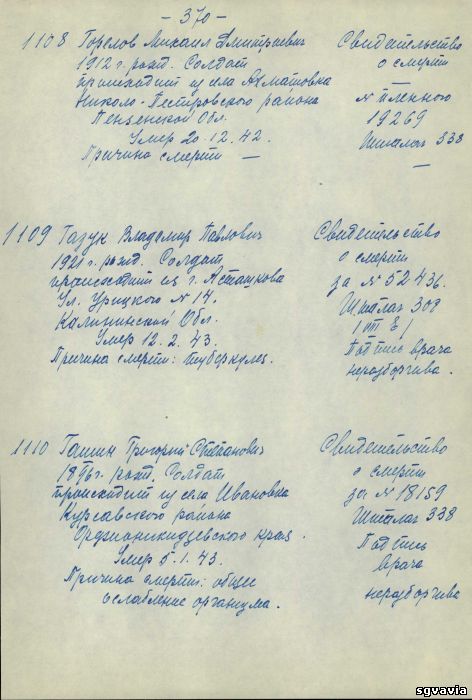 — 370 —
1108 Горелов Михаил Дмитриевич
1912 г рожд. Солдат
происходит из села Ахматовка
Николо-Пестровского района
Пензенской Обл.
Умер 20.12.42.
Причина смерти —
Свидетельство
о смерти
№ пленного
19269
Шталаг 338
—
1109 Газук Владимир Павлович
1921 г. рожд. Солдат
происходит из г. Асташкова
Ул. Урицкого № 14.
Калининской Обл.
Умер 12.2.43.
Причина смерти: туберкулез.
Свидетельство
о смерти
за № 52436.
Шталаг 308
Подпись врача
неразборчива.
1110 Гашин Григорий Степанович
1896 г. рожд. Солдат
происходит из села Ивановка
Курсавского района
Орджоникидзевского края.
Умер 5.1.43.
Причина смерти: общее
ослабление организма.
Свидетельство
о смерти
за № 18159
Шталаг 338
Подпись
врача
неразборчива
sgvavia